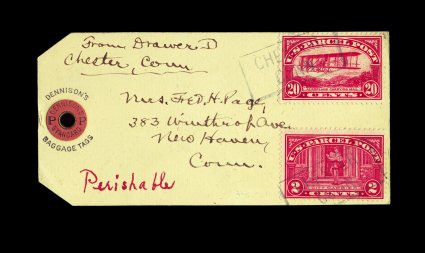 From Drawer D
Chester, Conn
DENNISON'S
DENNISON
P P
STANDARD
BAGGAGE TAGS
Mrs. Fred. H. Page,
383 Winthrop Ave.
New Haven,
Conn.
Perishable
U.S. PARCEL POST
20 20
CENTS
U.S. PARCEL POST
2 2
CENTS